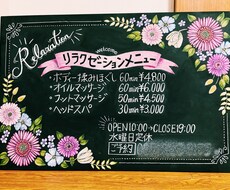 Relaxation
welcome
リラクゼーションメニュー
・ボディー揉みほぐし 60min ¥4,800
・オイルマッサージ 60min ¥6,000
・フットマッサージ 50min ¥4,500
・ヘッドスパ 30min ¥3,000
OPEN10:00→CLOSE19:00
水曜日定休